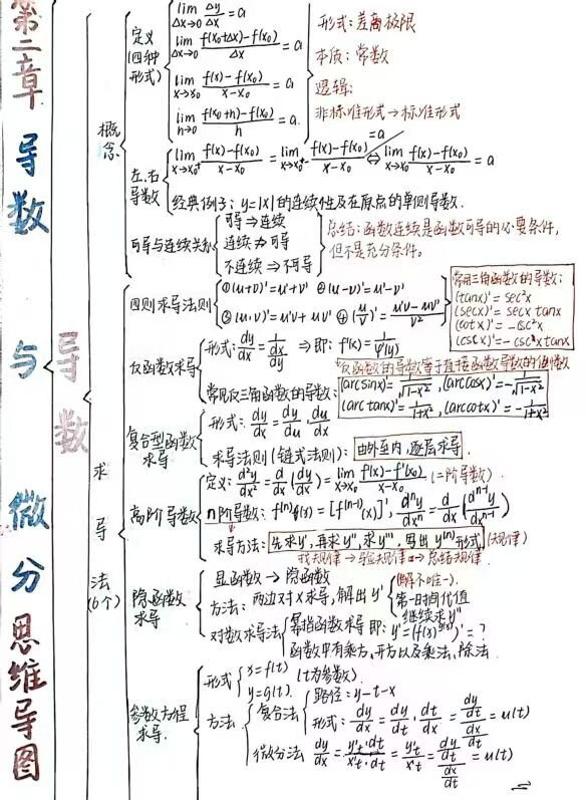 第二章 导数与微分 思维导图
导数
概念
定义(四种形式)
lim Δx→0 Δy/Δx = a
lim Δx→0 f(x₀+Δx)-f(x₀)/Δx = a
lim x→x₀ f(x)-f(x₀)/x-x₀ = a
lim h→0 f(x₀+h)-f(x₀)/h = a.
形式: 差商极限
本质: 常数
逻辑:
非标准形式→标准形式
左、右导数
lim x→x₀⁺ f(x)-f(x₀)/x-x₀ = lim x→x₀⁻ f(x)-f(x₀)/x-x₀ = a ⇔ lim x→x₀ f(x)-f(x₀)/x-x₀ = a
经典例子: y=|x|的连续性及在原点的单侧导数.
可导与连续关系
可导⇒连续
连续⇏可导
不连续⇒不可导
总结: 函数连续是函数可导的必要条件,
但不是充分条件。
求导法(6个)
四则求导法则
①(u+v)'=u'+v' ②(u-v)'=u'-v'
③(u.v)'=u'v+uv' ④(u/v)'=u'v-uv'/v²
常用三角函数的导数:
(tanx)'=sec²x
(secx)'=secx tanx
(cotx)'=-csc²x
反函数求导
形式: dy/dx = 1/(dx/dy) ⇒即: f'(x)=1/φ'(y)
反函数的导数等于直接函数导数的倒数
常见反三角函数的导数:
(arcsinx)'=1/√1-x², (arccosx)'=-1/√1-x²
(arctanx)'=1/1+x², (arccotx)'=-1/1+x²
复合型函数求导
形式: dy/dx = dy/du · du/dx
求导法则(链式法则): 由外至内,逐层求导.
高阶导数
定义: d²y/dx² = d/dx(dy/dx) = lim x→x₀ f'(x)-f'(x₀)/x-x₀ (二阶导数)
n阶导数: f⁽ⁿ⁾(x)=[f⁽ⁿ⁻¹⁾(x)]', dⁿy/dxⁿ = d/dx(dⁿ⁻¹y/dxⁿ⁻¹)
求导方法: 先求y',再求y'',求y''',写出y⁽ⁿ⁾形式 (规律)
找规律→验规律→总结规律
隐函数求导
显函数→隐函数
方法: 两边对x求导,解出y'
(解不唯一).
第一时间代值
继续求y''
对数求导法
幂指函数求导 即: y'=(f(x)^g(x))'=?
函数中有乘方、开方以及乘法、除法
参数方程求导.
形式 x=f(t) (t为参数)
y=g(t).
方法
复合法
路径: y-t-x
形式: dy/dx = dy/dt · dt/dx = (dy/dt)/(dx/dt) = u(t)
微分法 dy/dx = y't·dt/x't·dt = y't/x't = (dy/dt)/(dx/dt) = u(t)